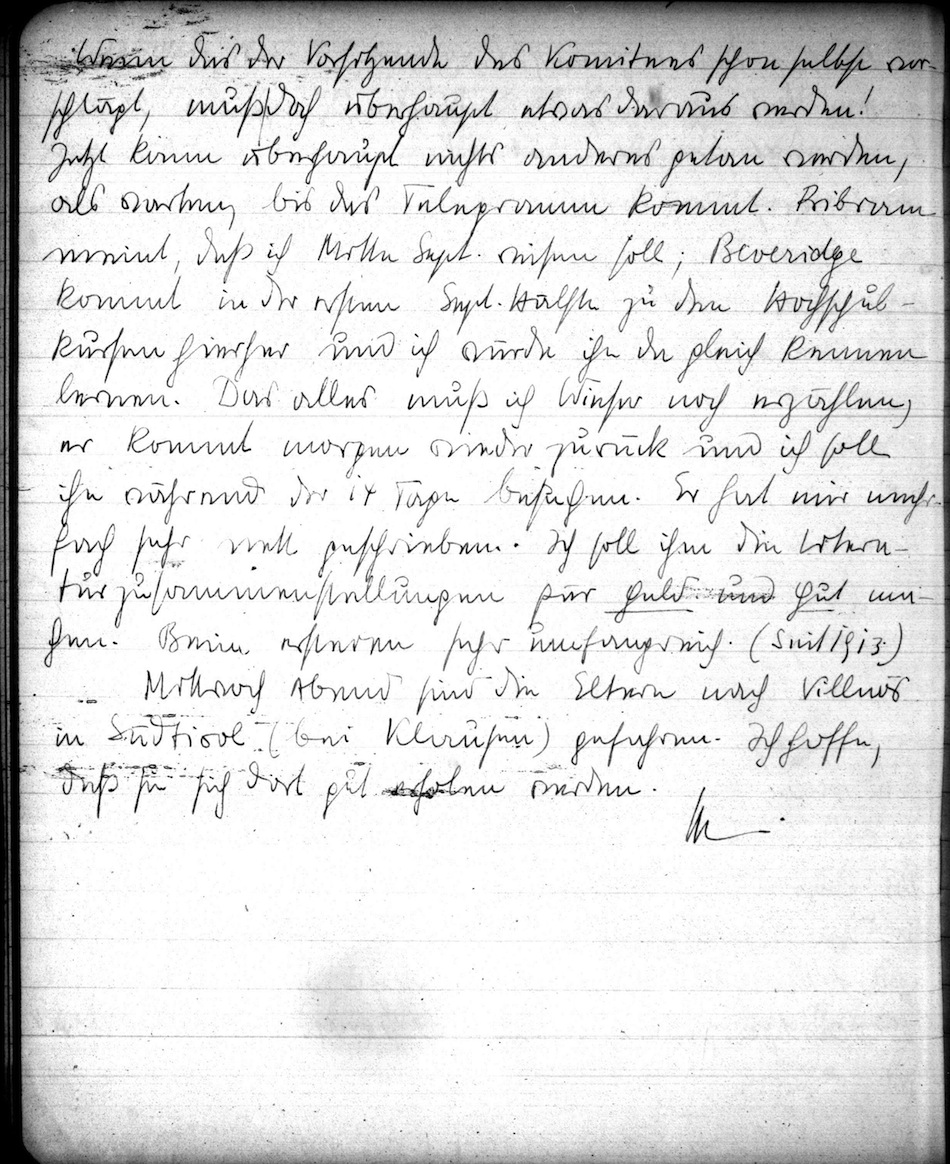 Wenn dies der Vorsitzende des Komitees schon selbst vor-
schlägt, muß doch überhaupt etwas daraus werden!
Jetzt kann überhaupt nichts anderes getan werden,
als warten, bis das Telegramm kommt. Pribram
meint, daß ich Mitte Sept. reisen soll; Beveridge
kommt in der ersten Sept. Hälfte zu den Hochschul-
kursen hierher und ich würde ihn da gleich kennen
lernen. Das alles muß ich Wieser noch erzählen,
er kommt morgen wieder zurück und ich soll
ihn während der 14 Tage besuchen. Er hat mir mehr-
fach sehr nett geschrieben. Ich soll ihm die Litera-
turzusammenstellungen für Geld und Gut ma-
chen. Beim ersteren sehr umfangreich. (Seit 1913.)
Mittwoch Abend sind die Eltern nach Villnös
in Südtirol (bei Klausen) gefahren. Ich hoffe,
daß sie sich dort gut erholen werden.